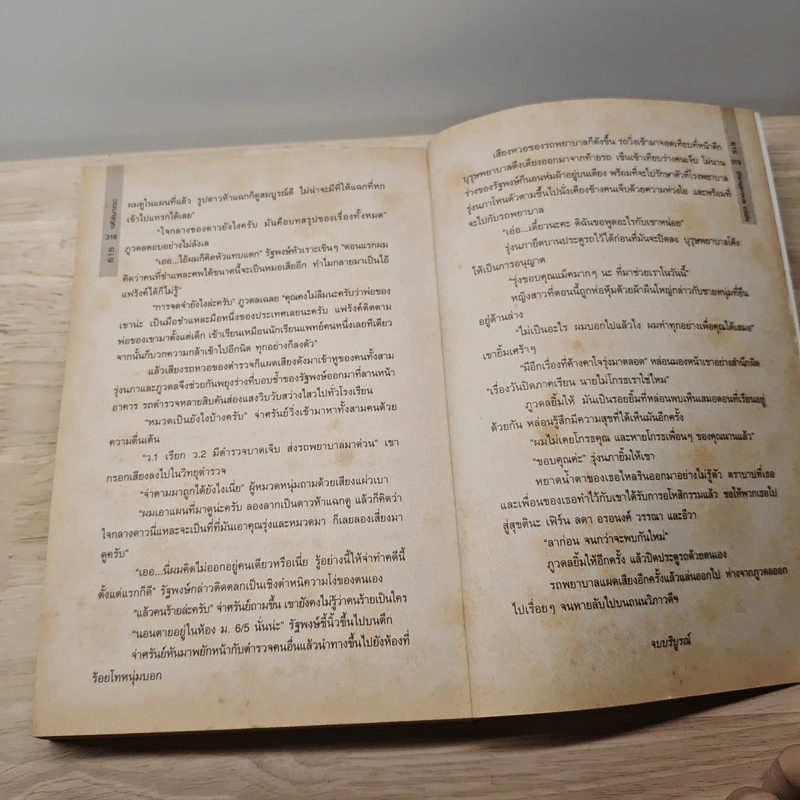 615
ผมดูในแผนที่แล้ว รูปดาวห้าแฉกก็ดูสมบูรณ์ดี ไม่น่าจะมีที่ให้แฉกที่หก
เข้าไปแทรกได้เลย"
"ใจกลางของดาวยังไงครับ มันคือบทสรุปของเรื่องทั้งหมด"
ภูวดลตอบอย่างไม่ลังเล
"เออ...ไอ้ผมก็คิดหัวแทบแตก" รัฐพงษ์หัวเราะเขินๆ "ตอนแรกผม
คิดว่าคนที่ชำแหละศพได้ขนาดนี้จะเป็นหมอเสียอีก ทำไมกลายมาเป็นไอ้
แฟรังค์ได้ก็ไม่รู้"
"การจดจำยังไงล่ะครับ" ภูวดลเฉลย "คุณคงไม่ลืมนะครับว่าพ่อของ
เขาน่ะ เป็นมือชำแหละมือหนึ่งของประเทศเลยนะครับ แฟรังค์ติดตาม
พ่อของเขามาตั้งแต่เด็ก เข้าเรียนเหมือนนักเรียนแพทย์คนหนึ่งเลยทีเดียว
จากนั้นก็บวกความกล้าเข้าไปอีกนิด ทุกอย่างก็ลงตัว"
แล้วเสียงรถหวอของตำรวจก็แผดเสียงดังมาเข้าหูของคนทั้งสาม
รุ่งนภาและภูวดลจึงช่วยกันพยุงร่างที่บอบช้ำของรัฐพงษ์ออกมาที่ลานหน้า
อาคาร รถตำรวจหลายสิบคันส่องแสงวิบวับสว่างไสวไปทั่วโรงเรียน
"หมวดเป็นยังไงบ้างครับ" จ่าศรัันย์วิ่งเข้ามาหาทั้งสามคนด้วย
ความตื่นเต้น
"ว.1 เรียก ว.2 มีตำรวจบาดเจ็บ ส่งรถพยาบาลมาด่วน" เขา
กรอกเสียงลงไปในวิทยุตำรวจ
"จ่าตามมาถูกได้ยังไงเนี่ย" ผู้หมวดหนุ่มถามด้วยเสียงแผ่วเบา
"ผมเอาแผนที่มาดูน่ะครับ ลองลากเป็นดาวห้าแฉกดู แล้วก็คิดว่า
ใจกลางดาวนี่แหละจะเป็นที่ที่มันเอาคุณรุ่งและหมวดมา ก็เลยลองเสี่ยงมา
ดูครับ"
"เออ...นี่ผมคิดไม่ออกอยู่คนเดียวหรือเนี่ย รู้อย่างนี้ให้จ่าทำคดีนี้
ตั้งแต่แรกก็ดี" รัฐพงษ์กล่าวติดตลกเป็นเชิงตำหนิความโง่ของตนเอง
"แล้วคนร้ายล่ะครับ" จ่าศรันย์ถามขึ้น เขายังคงไม่รู้ว่าคนร้ายเป็นใคร
"นอนตายอยู่ในห้อง ม. 6/5 นั่นน่ะ" รัฐพงษ์ชี้นิ้วขึ้นไปบนตึก
จ่าศรันย์หันมาพยักหน้ากับตำรวจคนอื่นแล้วนำทางขึ้นไปยังห้องที่
ร้อยโทหนุ่มบอก
เสียงหวอของรถพยาบาลก็ดังขึ้น รถวิ่งเข้ามาจอดเทียบที่หน้าตึก
บุรุษพยาบาลดึงเตียงออกมาจากท้ายรถ เข็นเข้าเทียบร่างคนเจ็บ ไม่นาน
ร่างของรัฐพงษ์ก็นอนห่มผ้าอยู่บนเตียง พร้อมที่จะไปรักษาตัวที่โรงพยาบาล
รุ่งนภาโหนตัวตามขึ้นไปนั่งเคียงข้างคนเจ็บด้วยความห่วงใย และพร้อมที่
จะไปกับรถพยาบาล
"เอ่อ...เดี๋ยวนะคะ ดิฉันขอพูดอะไรกับเขาหน่อย"
รุ่งนภายึดบานประตูรถไว้ได้ก่อนที่มันจะปิดลง บุรุษพยาบาลโค้ง
ให้เป็นการอนุญาต
"รุ่งขอบคุณแม็คมากๆ นะ ที่มาช่วยเราในวันนี้"
หญิงสาวที่ตอนนี้ถูกห่อหุ้มด้วยผ้าผืนใหญ่กล่าวกับชายหนุ่มที่ยืน
อยู่ด้านล่าง
"ไม่เป็นอะไร ผมบอกไปแล้วไง ผมทำทุกอย่างเพื่อคุณได้เสมอ"
เขายิ้มเศร้าๆ
"มีอีกเรื่องที่ค้างคาใจรุ่งมาตลอด" หล่อนมองหน้าเขาอย่างสำนึกผิด
"เรื่องวันปิดภาคเรียน นายไม่โกรธเราใช่ไหม"
ภูวดลยิ้มให้ มันเป็นรอยยิ้มที่หล่อนพบเห็นเสมอตอนที่เรียนอยู่
ด้วยกัน หล่อนรู้สึกมีความสุขที่ได้เห็นมันอีกครั้ง
"ผมไม่เคยโกรธคุณ และหายโกรธเพื่อนๆ ของคุณนานแล้ว"
"ขอบคุณค่ะ" รุ่งนภายิ้มให้เขา
หยาดน้ำตาของเธอไหลรินออกมาอย่างไม่รู้ตัว ตราบาปที่เธอ
และเพื่อนของเธอทำไว้กับเขาได้รับการอโหสิกรรมแล้ว ขอให้พวกเธอไป
สู่สุขตินะ เฟิร์น ลดา อรอนงค์ วรรณา และอีวา
"ลาก่อน จนกว่าจะพบกันใหม่"
ภูวดลยิ้มให้อีกครั้ง แล้วปิดประตูรถด้วยตนเอง
รถพยาบาลแผดเสียงอีกครั้งแล้วแล่นออกไป ห่างจากภูวดลออก
ไปเรื่อยๆ จนหายลับไปบนถนนวิภาวดีฯ
จบบริบูรณ์